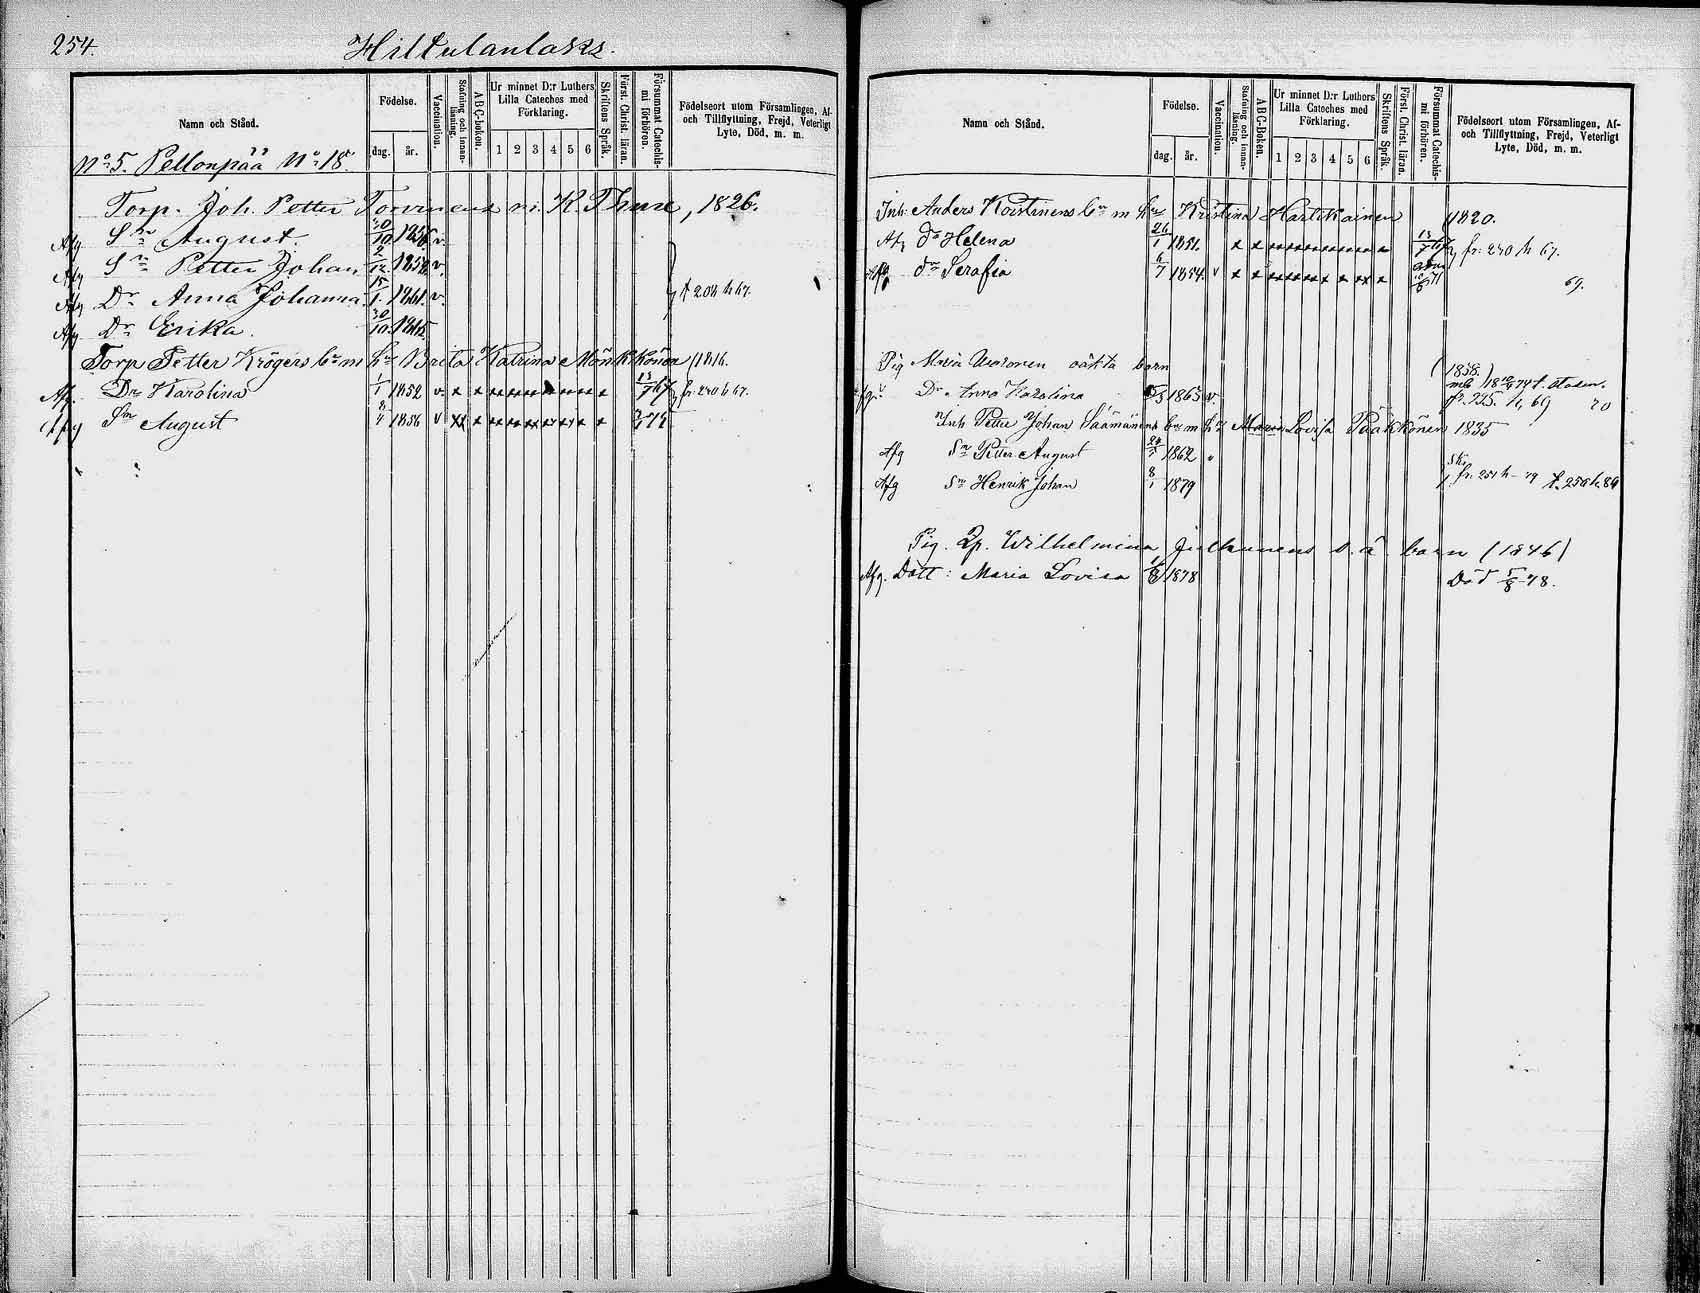 254.
Hiltulanlaks.
Namn och Stånd.
Födelse.
dag.
år.
Vaccination.
Stafning och innanläsning.
A B C-boken.
Ur minnet D:r Luthers Lilla Cateches med Förklaring.
1 2 3 4 5 6
Skriftens Språk.
Först. Christ. läran.
Försummat Catechismi förhören.
Födelseort utom Församlingen, Af- och Tillflyttning, Frejd, Veterligt Lyte, Död, m. m.
No 5. Pellonpää No 18
Torp. Joh. Petter Torvinens m. K. Thure, 1826.
Afg Sn August. 30/10 1856 v.
Afg Sn Petter Johan 2/12 1858 v.
Afg Dr Anna Johanna 15/1 1861 v. f 208 h 67.
Afg Dr Erika. 30/10 1865
Torp Petter Krögers bn m hu Brita Katrina Mönkkönen (1816.
Af. Dr Karolina 1/1 1852 v x x xxxxxx x 13/7 67 fr. 240 h 67.
Afg Sn August 8/4 1856 v xx x xxxxxx x
Namn och Stånd.
Födelse.
dag.
år.
Vaccination.
Stafning och innanläsning.
A B C-boken.
Ur minnet D:r Luthers Lilla Cateches med Förklaring.
1 2 3 4 5 6
Skriftens Språk.
Först. Christ. läran.
Försummat Catechismi förhören.
Födelseort utom Församlingen, Af- och Tillflyttning, Frejd, Veterligt Lyte, Död, m. m.
Inh: Anders Koistinens bn m hu Kristina Hartikainen 1820.
Af dr Helena 26/1 1851. x x xxxxxx x 13/7 67 fr. 240 h 67.
Afg dr Serafia 6/7 1854 v x x xxxxxx x 69.
Pig Maria oäkta barn (1838.)
Dr Anna Karolina 1865 v fr. 235. h, 69 70
Inh Petter Johan Säämänens bn m hu Maria Lovisa Pääkkönen 1835
Afg Sn Petter August 24/1 1862
Afg Sn Henrik Johan 8/1 1879 fr. 251 h - 79 f. 250 h. 80
Pig. Qp. Wilhelmina Julkunens o. ä. barn (1846)
Afg. Dott: Maria Lovisa 1878 Död 5/8 -78.